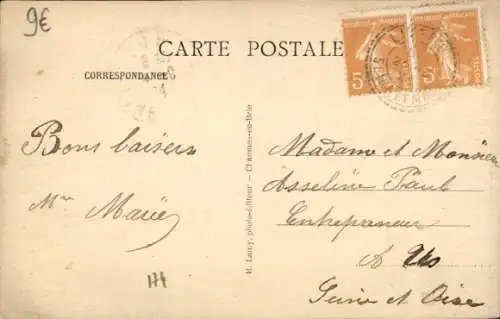 9€
CARTE POSTALE
CORRESPONDANCE
Bons baisers
Mme Marie
174
H. Lamy, photo-éditeur - Charmes-en-Brie
5
5
POSTES
Madame et Monsieur
Asseline Paul
Entrepreneur
A Us
Seine et Oise